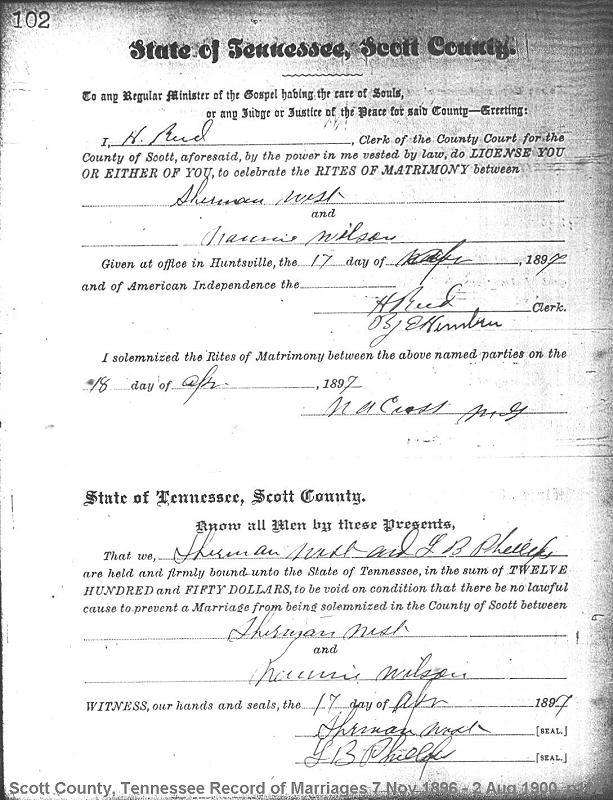 102
State of Tennessee, Scott County.
To any Regular Minister of the Gospel having the care of Souls,
or any Judge or Justice of the Peace for said County—Greeting:
I, H. Reed, Clerk of the County Court for the
County of Scott, aforesaid, by the power in me vested by law, do LICENSE YOU
OR EITHER OF YOU, to celebrate the RITES OF MATRIMONY between
Sherman West
and
Nannie Wilson
Given at office in Huntsville, the 17 day of Apr, 1897
and of American Independence the
H Reed Clerk.
By
I solemnized the Rites of Matrimony between the above named parties on the
18 day of Apr, 1897
N A Cross M G
State of Tennessee, Scott County.
Know all Men by these Presents,
That we, Sherman West and L B Phillips
are held and firmly bound unto the State of Tennessee, in the sum of TWELVE
HUNDRED and FIFTY DOLLARS, to be void on condition that there be no lawful
cause to prevent a Marriage from being solemnized in the County of Scott between
Sherman West
and
Nannie Wilson
WITNESS, our hands and seals, the 17 day of Apr 1897
Sherman West [SEAL.]
L B Phillips [SEAL.]
Scott County, Tennessee Record of Marriages 7 Nov 1896 - 2 Aug 1900